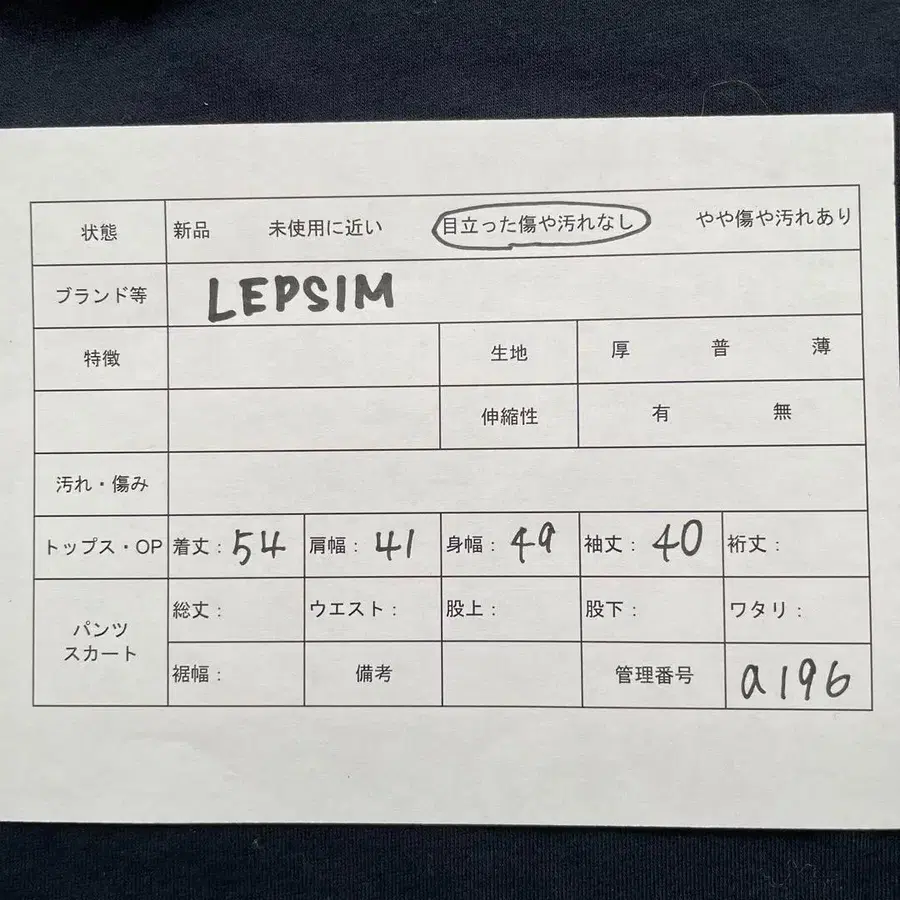 状態 新品 未使用に近い 目立った傷や汚れなし やや傷や汚れあり
ブランド等 LEPSIM
特徴 生地 厚 普 薄
伸縮性 有 無
汚れ・傷み
トップス・OP 着丈：54 肩幅：41 身幅：49 袖丈：40 裄丈：
パンツ
スカート
総丈： ウエスト： 股上： 股下： ワタリ：
裾幅： 備考 管理番号 a196